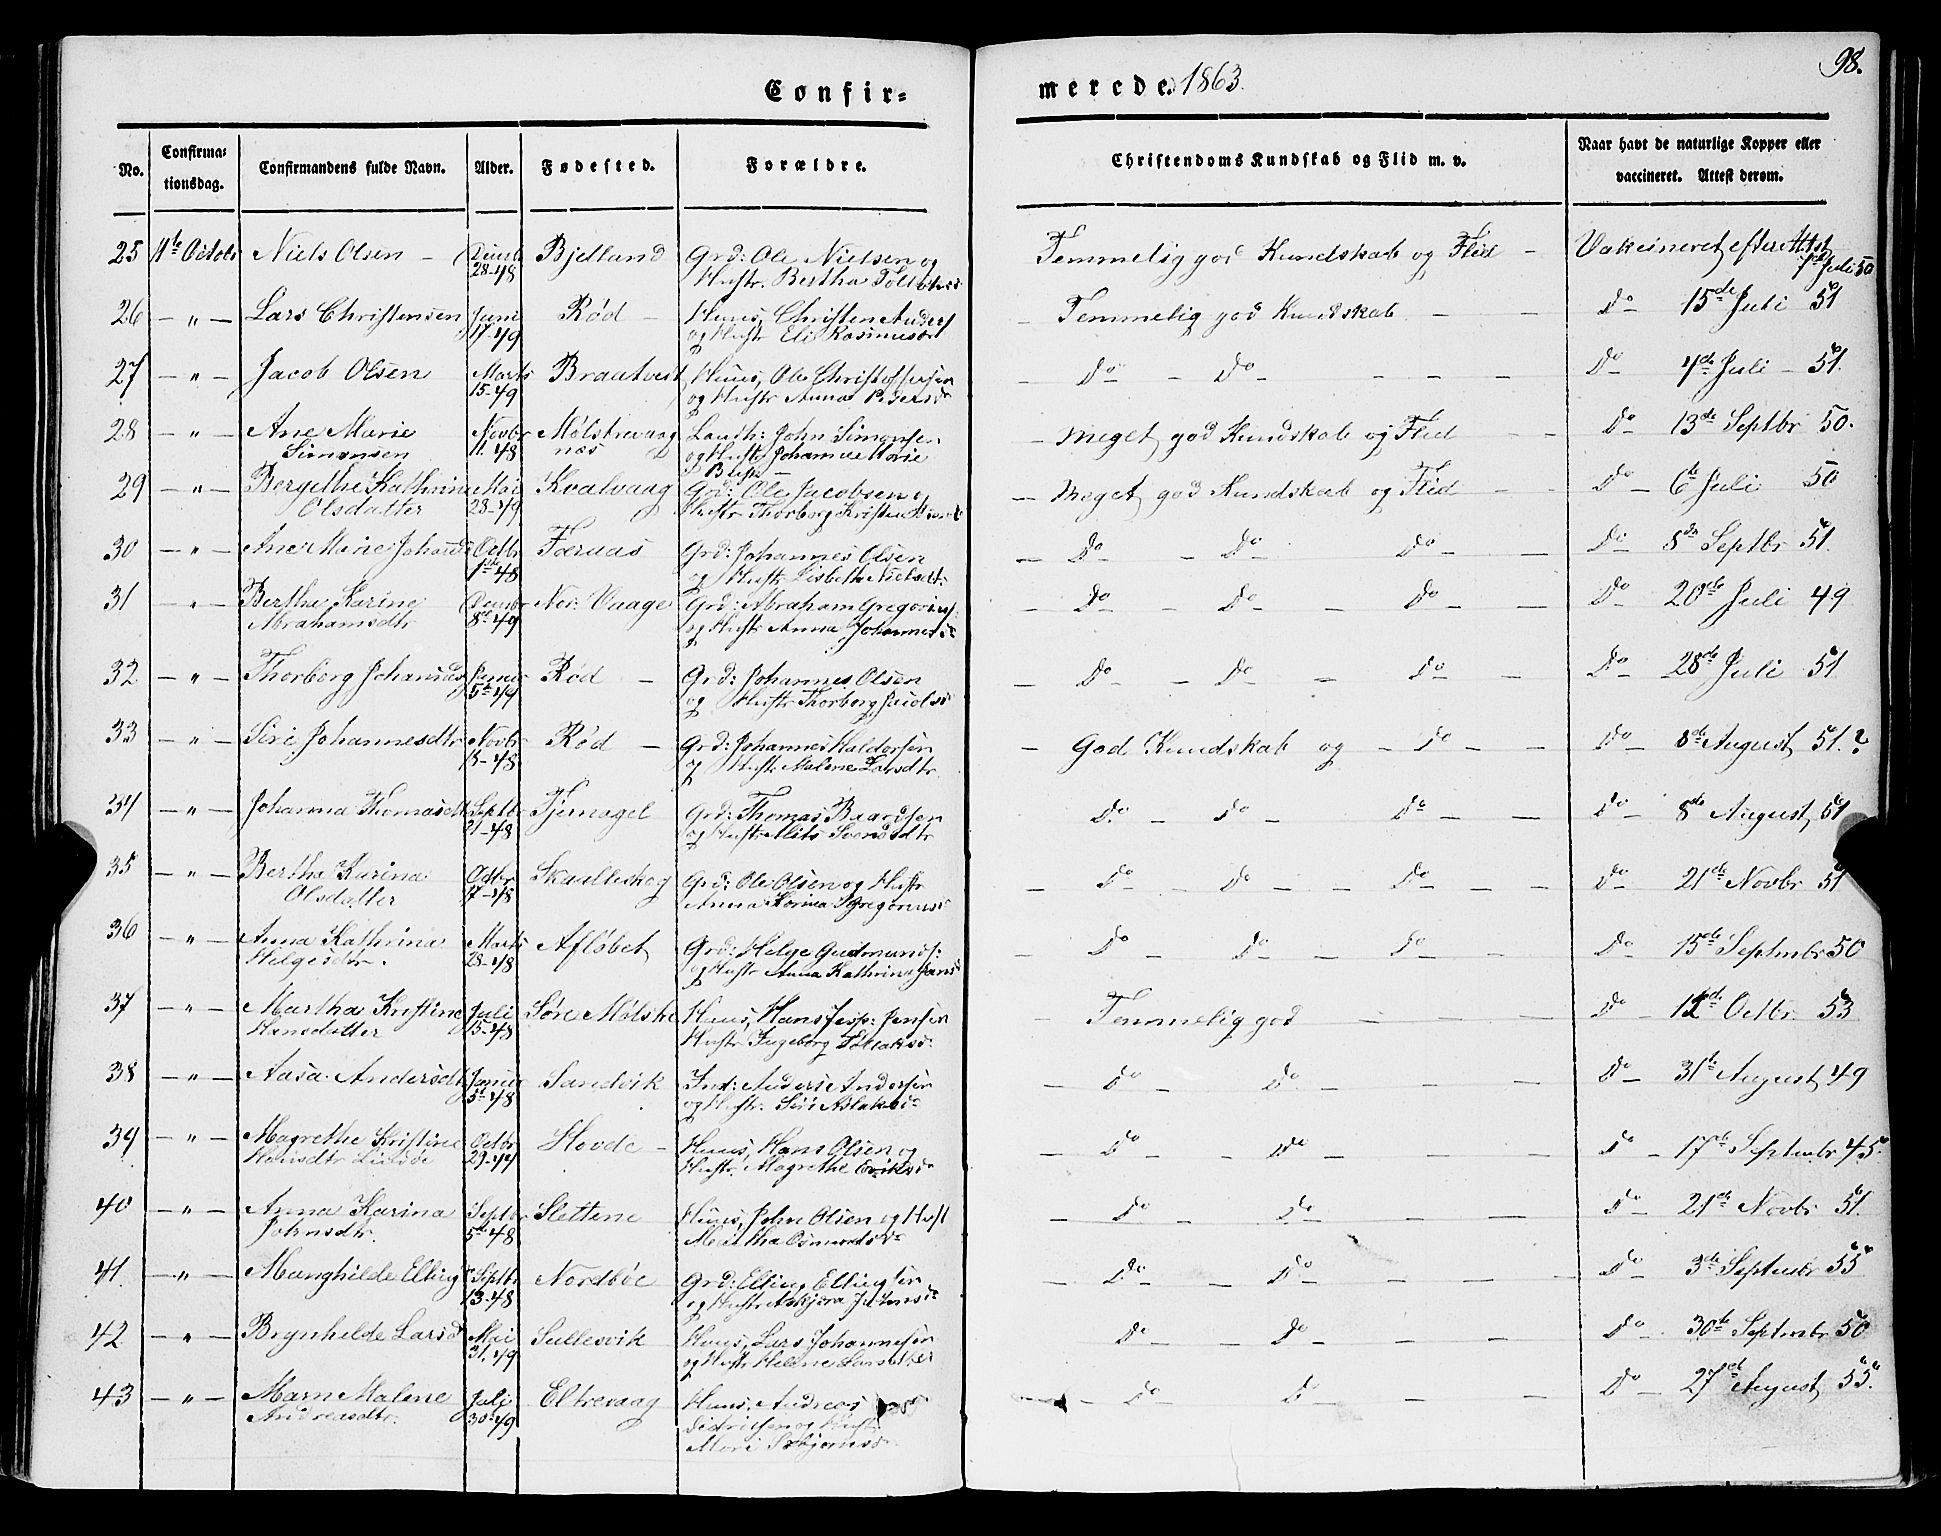 98.
Confir-
merede. 1863.
No.
Confirma-
tionsdag.
Confirmandens fulde Navn.
Alder.
Fødested.
Forældre.
Christendoms Kundskab og Flid m. v.
Naar havt de naturlige Kopper eller
vaccineret. Attest derom.
25 11te Octobr Niels Olsen – 28-48 Bjelland Grd: Ole Nielsen og Temmelig god Kundskab og Flid – Vakcineret efter Attst
Hustr. Bertha Juli 50
26 – " – Lars Christensen Juni 17-49 Rød – Huus, Christen – Temmelig god Kundskab – – Do – 15de Juli 51
og Hustr Eli Rasmusdr
27 – " – Jacob Olsen Marts 15-49 Braatveit Huus, Ole Christoffersen – Do – Do – – – – Do – 4de Juli – 51.
og Hustr Anna Pedersdr
28 – " – Ane Marie Novbr 11.48 Mølstrevaag John Simonsen – meget god Kundskab og Flid – – Do – 13de Septbr 50.
Simonsen næs og Hustr Johanne Marie
29 – " – Bergithe Kathrine Mai 28-49 Kvalvaag Grd: Ole Jacobsen og – meget god Kundskab og Flid – – Do – 6te Juli 50
Olsdatter Hustr Thorborg
30 – " – Ane Marie Octbr 1ste 48 Færaas Grd: Johannes Olsen – Do – Do Do – – Do – 8de Septbr 51.
og Hustr Lisbeth Nielsdt:
31 – " – Berthe Karine 8de 49 Ner: Vaage Grd: Abraham – Do – Do – – Do – – Do – 20de Juli 49
Abrahamsdtr og Hustr Anna
32 – " – Thorborg 5te 49 Rød – Grd: Johannes Olsen – Do – Do – – Do – – Do – 28de Juli 51
og Hustr Thorborg
33 – " – Siri Johannesdtr Novbr 15-48 Rød – Grd: Johannes Haldorsen – God Kundskab og – Do – – Do – 8de August 51.?
og Hustr Malene Larsdtr
34 – " – Johanna Septbr 21-48 Tjernagel Grd: Thomas Baardsen Do – Do – Do – Do – 8de August 51
og Hustr Alits Svendsdtr
35 – " – Bertha Karina Octbr 17-48 Grd: Ole Olsen og Hustr – Do – Do – – – Do – – Do – 21de Novbr 51
Olsdatter Anna Karina
36 – " – Anna Kathrina Marts 28-48 Afløbet Grd: Helge Gudmunds: – Do – Do – Do – – Do – 15de Septmbr 50
Helgesdtr. og Hustr Anna Kathrina
37 – " – Martha Kristine Juli 15-48 Søre Huus, Hans Jesp: Jensen – Temmelig god – – – – Do – 12de Octbr. 53
Hansdatter Hustr Ingeborg
38 – " – Aasa Andersdt 5te 48 Sandvik Ind: Anders Andersen – Do – Do – – – Do – 31te August 49
og Hustr. Siri
39 – " – Magrethe Kristine Octbr 29-47 Hovde – Huus, Hans Olsen og Do – Do – – – Do – 17de Septmbr 45.
Hustr. Magrethe
40 – " – Anna Karina Septbr 5te 48 Slettene Huus, John Olsen og Hust – Do – Do – – – Do – 21de Novbr 51.
Johnsdtr. Martha
41. – " – Manghilde Septbr 13-48 Nordbøe Grd: – Do – Do – – – Do – 3de Septmbr 55
og Hustr
42 – " – Brynhilde Larsd Mai 31.49 Sullesvik Huus, Lars Johannesen Do – Do – – – Do – 30te Septmbr 50
og Hustr Helene
43 – " – Maren Malene Juli 30-49 Eltrevaag Huus. Andreas Do – Do – – – Do – 27de August 55.
Andreasdtr. Didriksen og Hustr